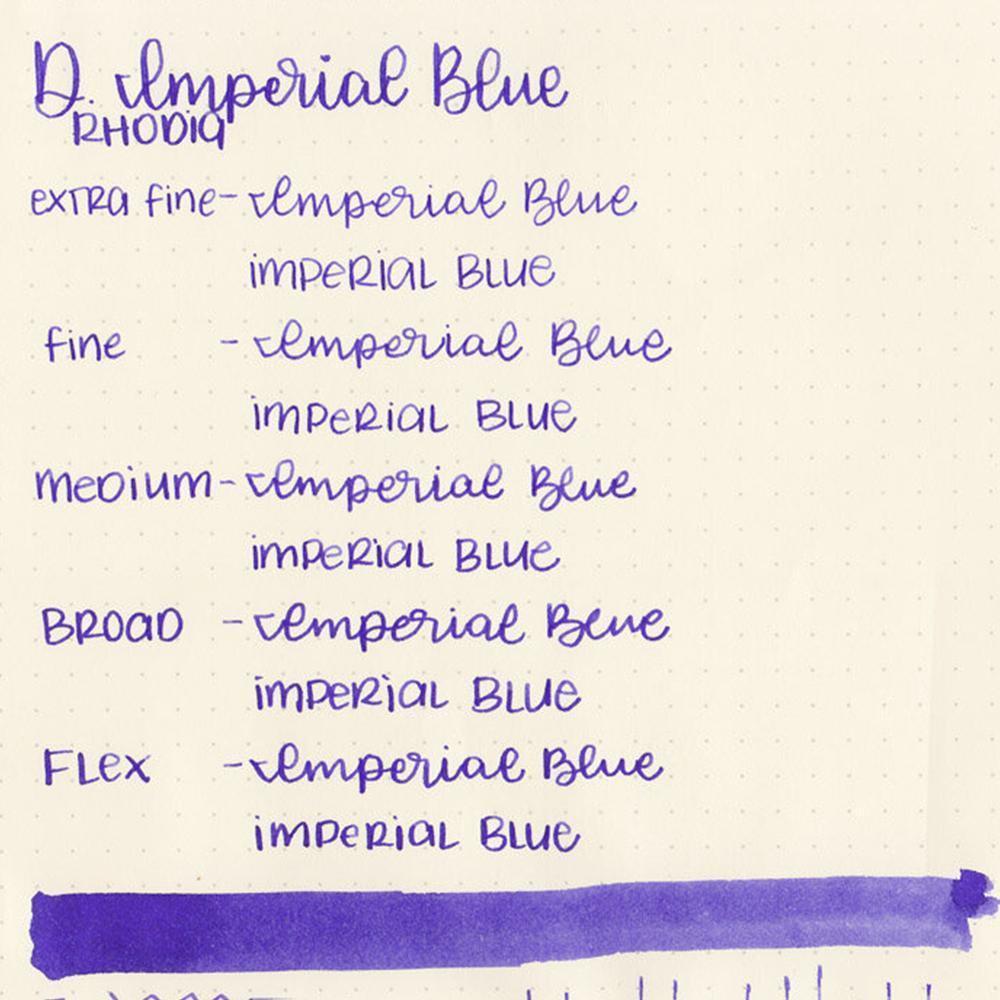 D. Imperial Blue
RHODIA
extra fine - Imperial Blue
imperial Blue
fine - Imperial Blue
imperial Blue
medium - Imperial Blue
imperial Blue
Broad - Imperial Blue
imperial Blue
Flex - Imperial Blue
imperial Blue